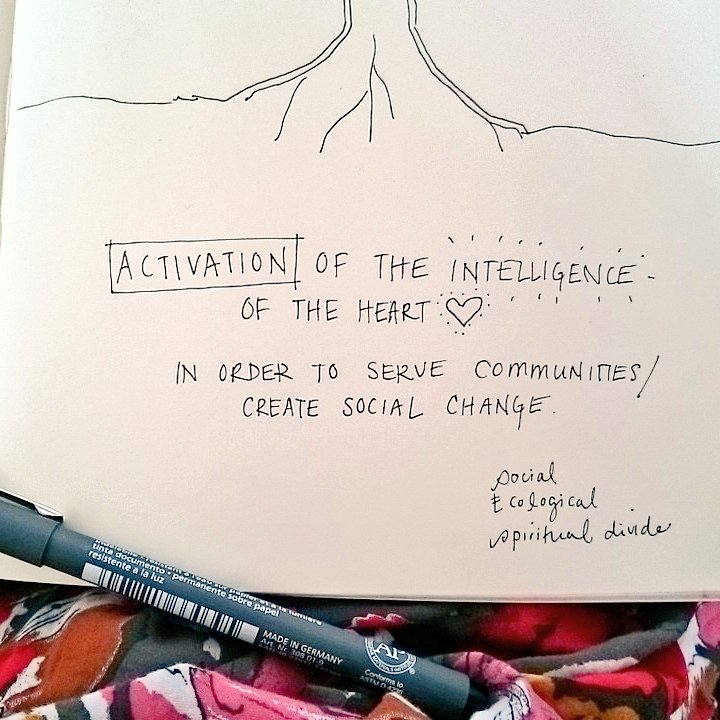 ACTIVATION OF THE INTELLIGENCE
OF THE HEART
IN ORDER TO SERVE COMMUNITIES/
CREATE SOCIAL CHANGE.
social
Ecological
spiritual divide
tinta documento • permanente sobre papel
resistente a la luz
MADE IN GERMANY
Art. Nr. 308 01-9
AP
Conforms to
ASTM D 4236